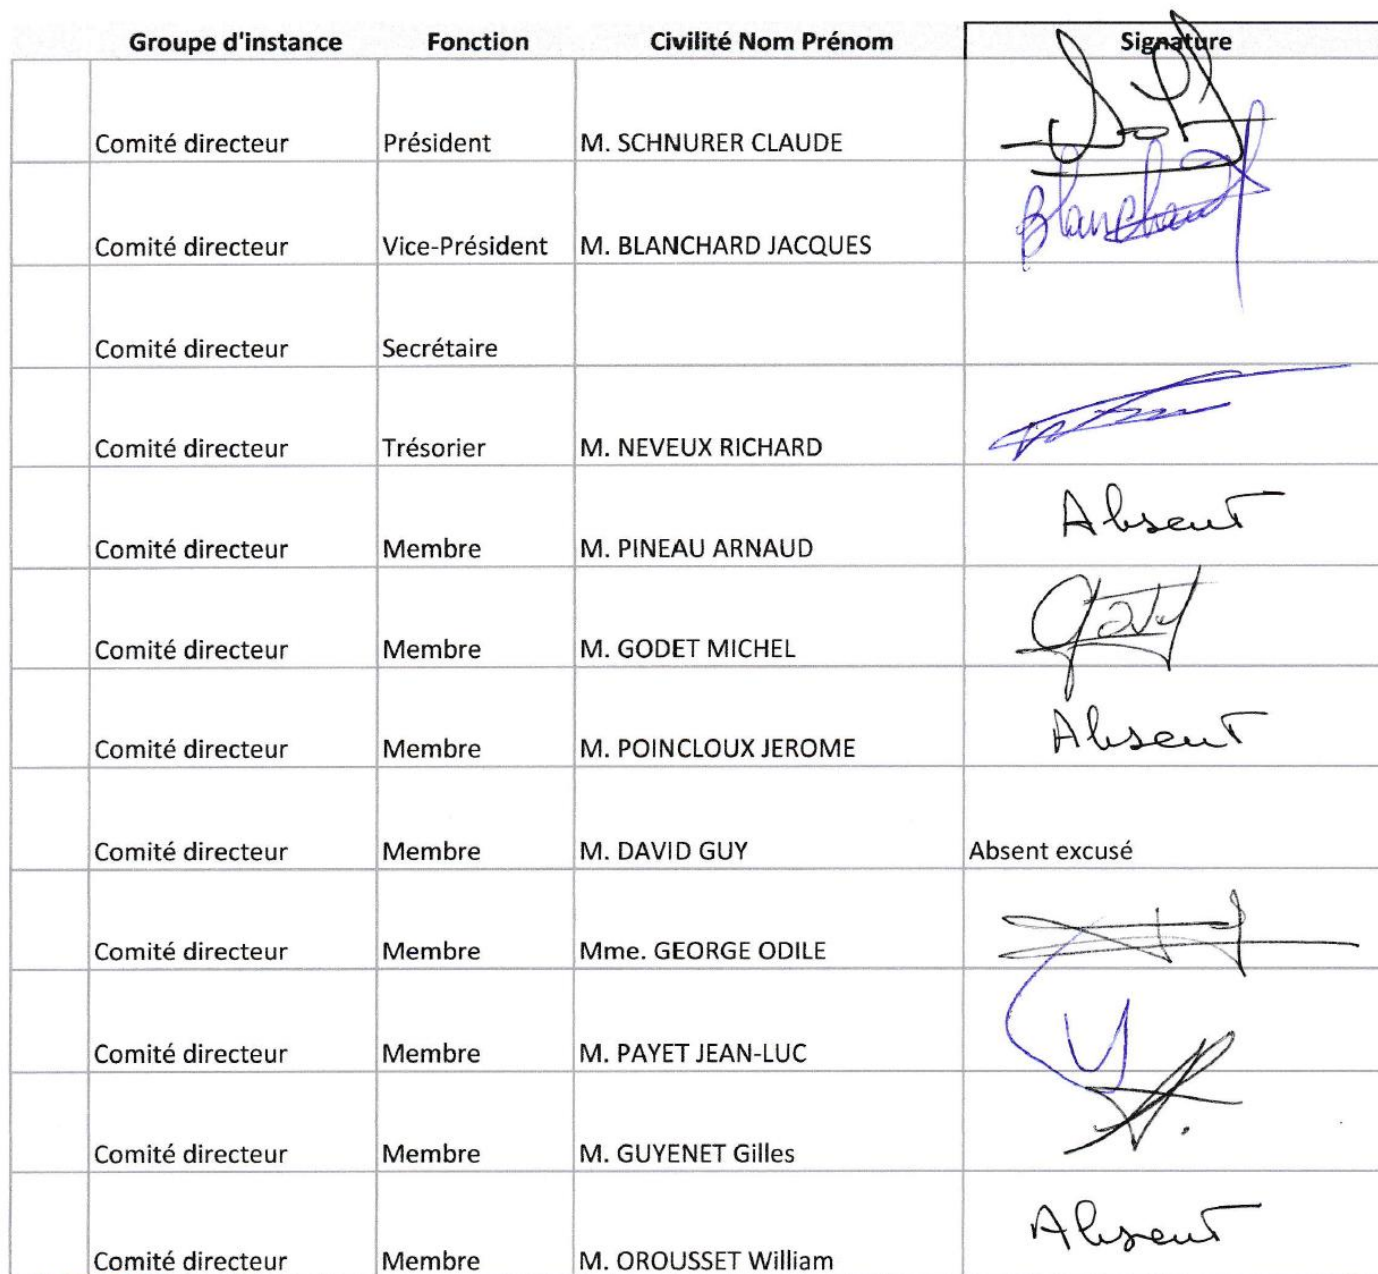 Groupe d'instance Fonction Civilité Nom Prénom Signature
Comité directeur Président M. SCHNURER CLAUDE
Comité directeur Vice-Président M. BLANCHARD JACQUES Blanchard
Comité directeur Secrétaire
Comité directeur Trésorier M. NEVEUX RICHARD
Comité directeur Membre M. PINEAU ARNAUD Absent
Comité directeur Membre M. GODET MICHEL
Comité directeur Membre M. POINCLOUX JEROME Absent
Comité directeur Membre M. DAVID GUY Absent excusé
Comité directeur Membre Mme. GEORGE ODILE
Comité directeur Membre M. PAYET JEAN-LUC
Comité directeur Membre M. GUYENET Gilles
Comité directeur Membre M. OROUSSET William Absent